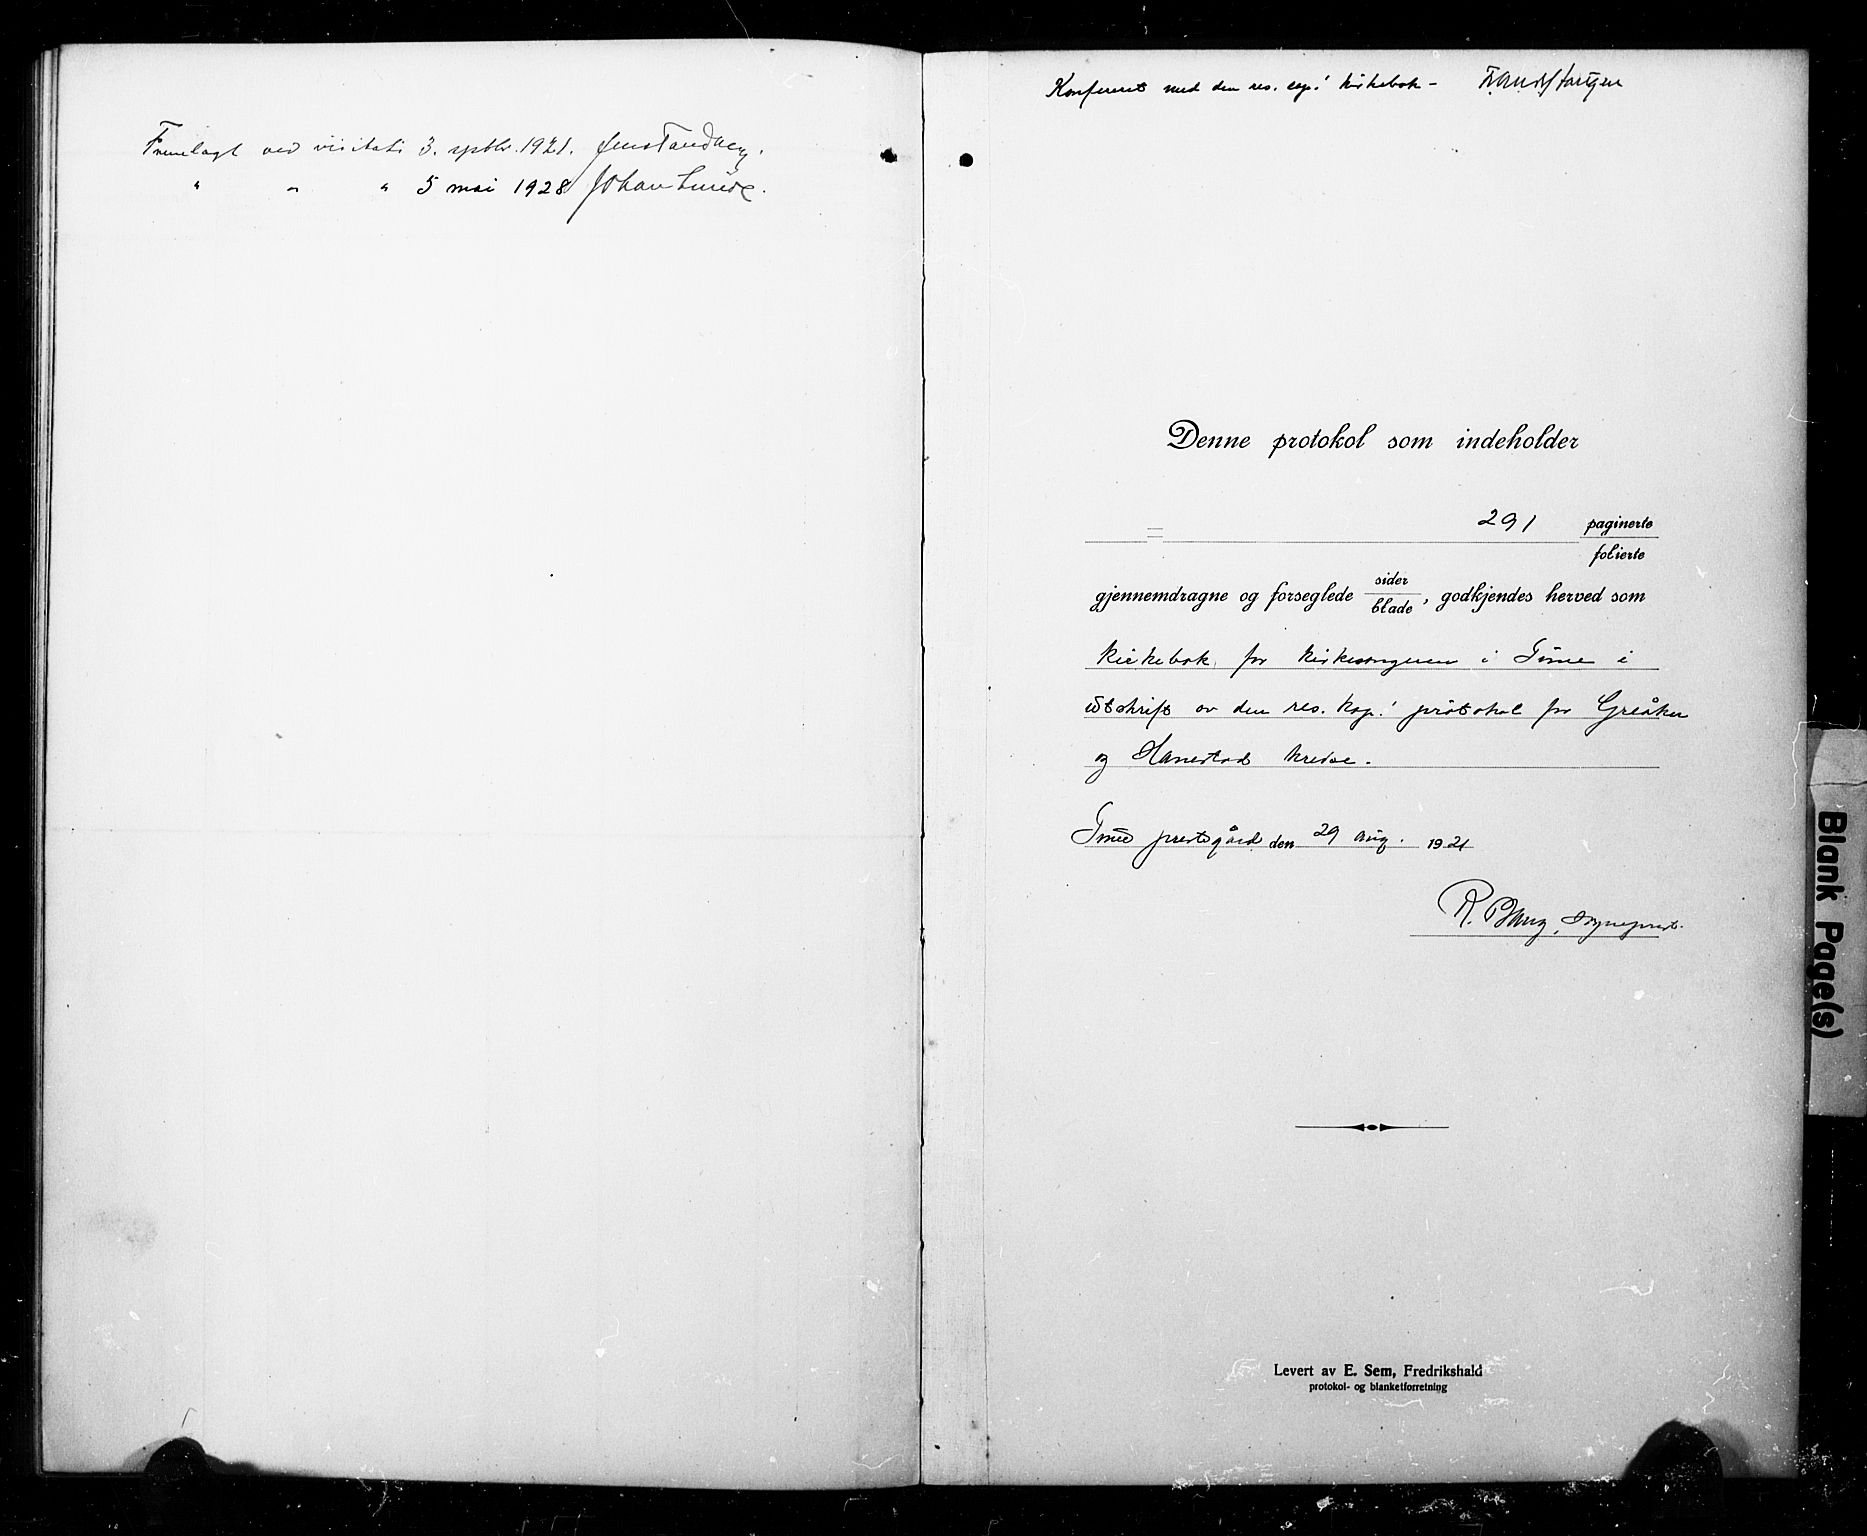 Fremlagt ved visitats 3. septbr. 1921. Jens Tandberg.
" " " 5 mai 1928 Johan Lunde.
Konferert med den res. cap.' kirkebok –
Denne protokol som indeholder
= 291 paginerte
folierte
gjennemdragne og forseglede sider
blade, godkjendes herved som
kirkebok for kirkesangeren i Tune i
utskrift av den res. kap.' protokol for Greåker
og Hanestad kredse.
Tune prestegård den 29 aug. 1921
R. Bang, Sogneprest.
Levert av E. Sem, Fredrikshald
protokol- og blanketforretning
Blank Page(s)